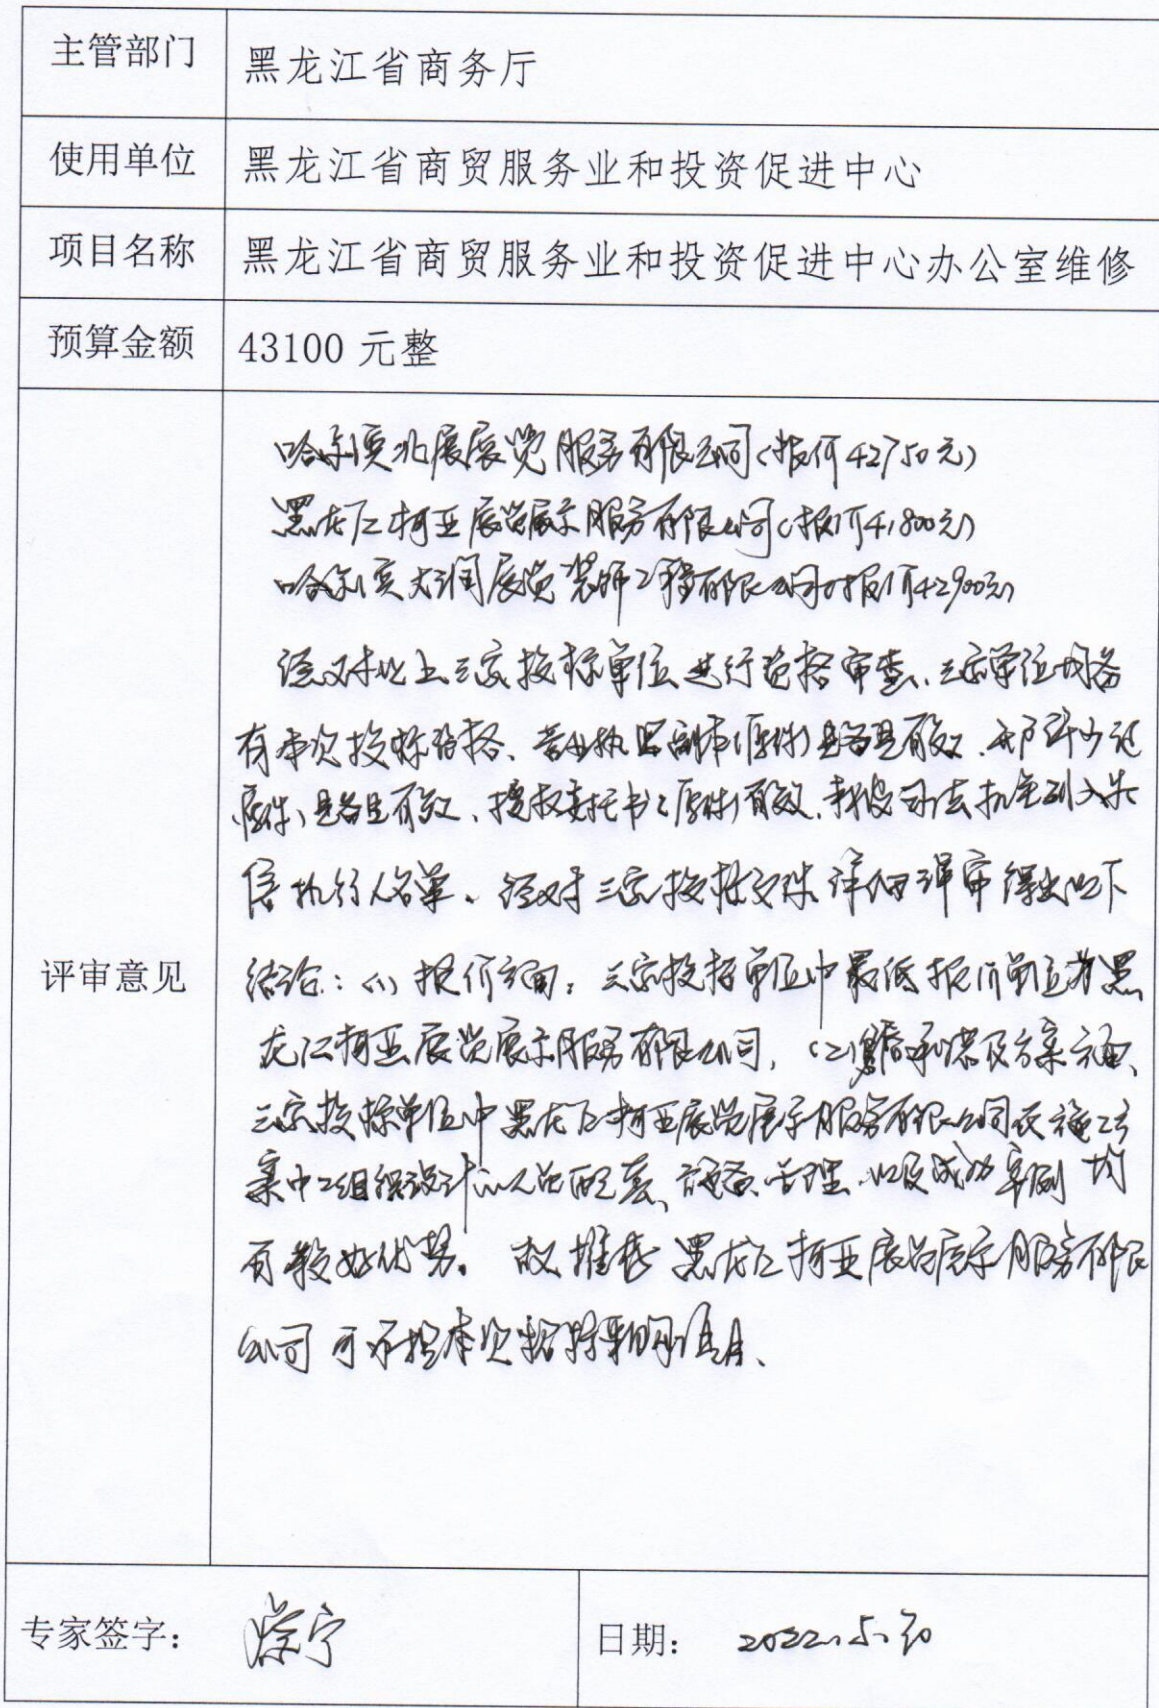 主管部门 黑龙江省商务厅
使用单位 黑龙江省商贸服务业和投资促进中心
项目名称 黑龙江省商贸服务业和投资促进中心办公室维修
预算金额 43100 元整
评审意见
哈尔滨北展展览服务有限公司(报价42750元)
黑龙江柯亚展览展示服务有限公司(报价41800元)
哈尔滨大润展览装饰工程有限公司(报价42900元)
经对以上三家投标单位进行资格审查、三家单位均备
有本次投标资格、营业执照副本(原件)是有效、开户许可证
(原件)有效、授权委托书(原件)有效、未被司法机关列入失
信执行人名单。经对三家投标文件详细评审得出以下
结论:(1)报价方面:三家投标单位中最低报价单位为黑
龙江柯亚展览展示服务有限公司,(2)承诺及方案方面、
三家投标单位中黑龙江柯亚展览展示服务有限公司在施工方
案中组织设计、人员配套、设备、管理、以及成功案例均
有较好优势。故推荐黑龙江柯亚展览展示服务有限
公司可承担本次招标采购项目、
专家签字: 日期: 2022.5.30